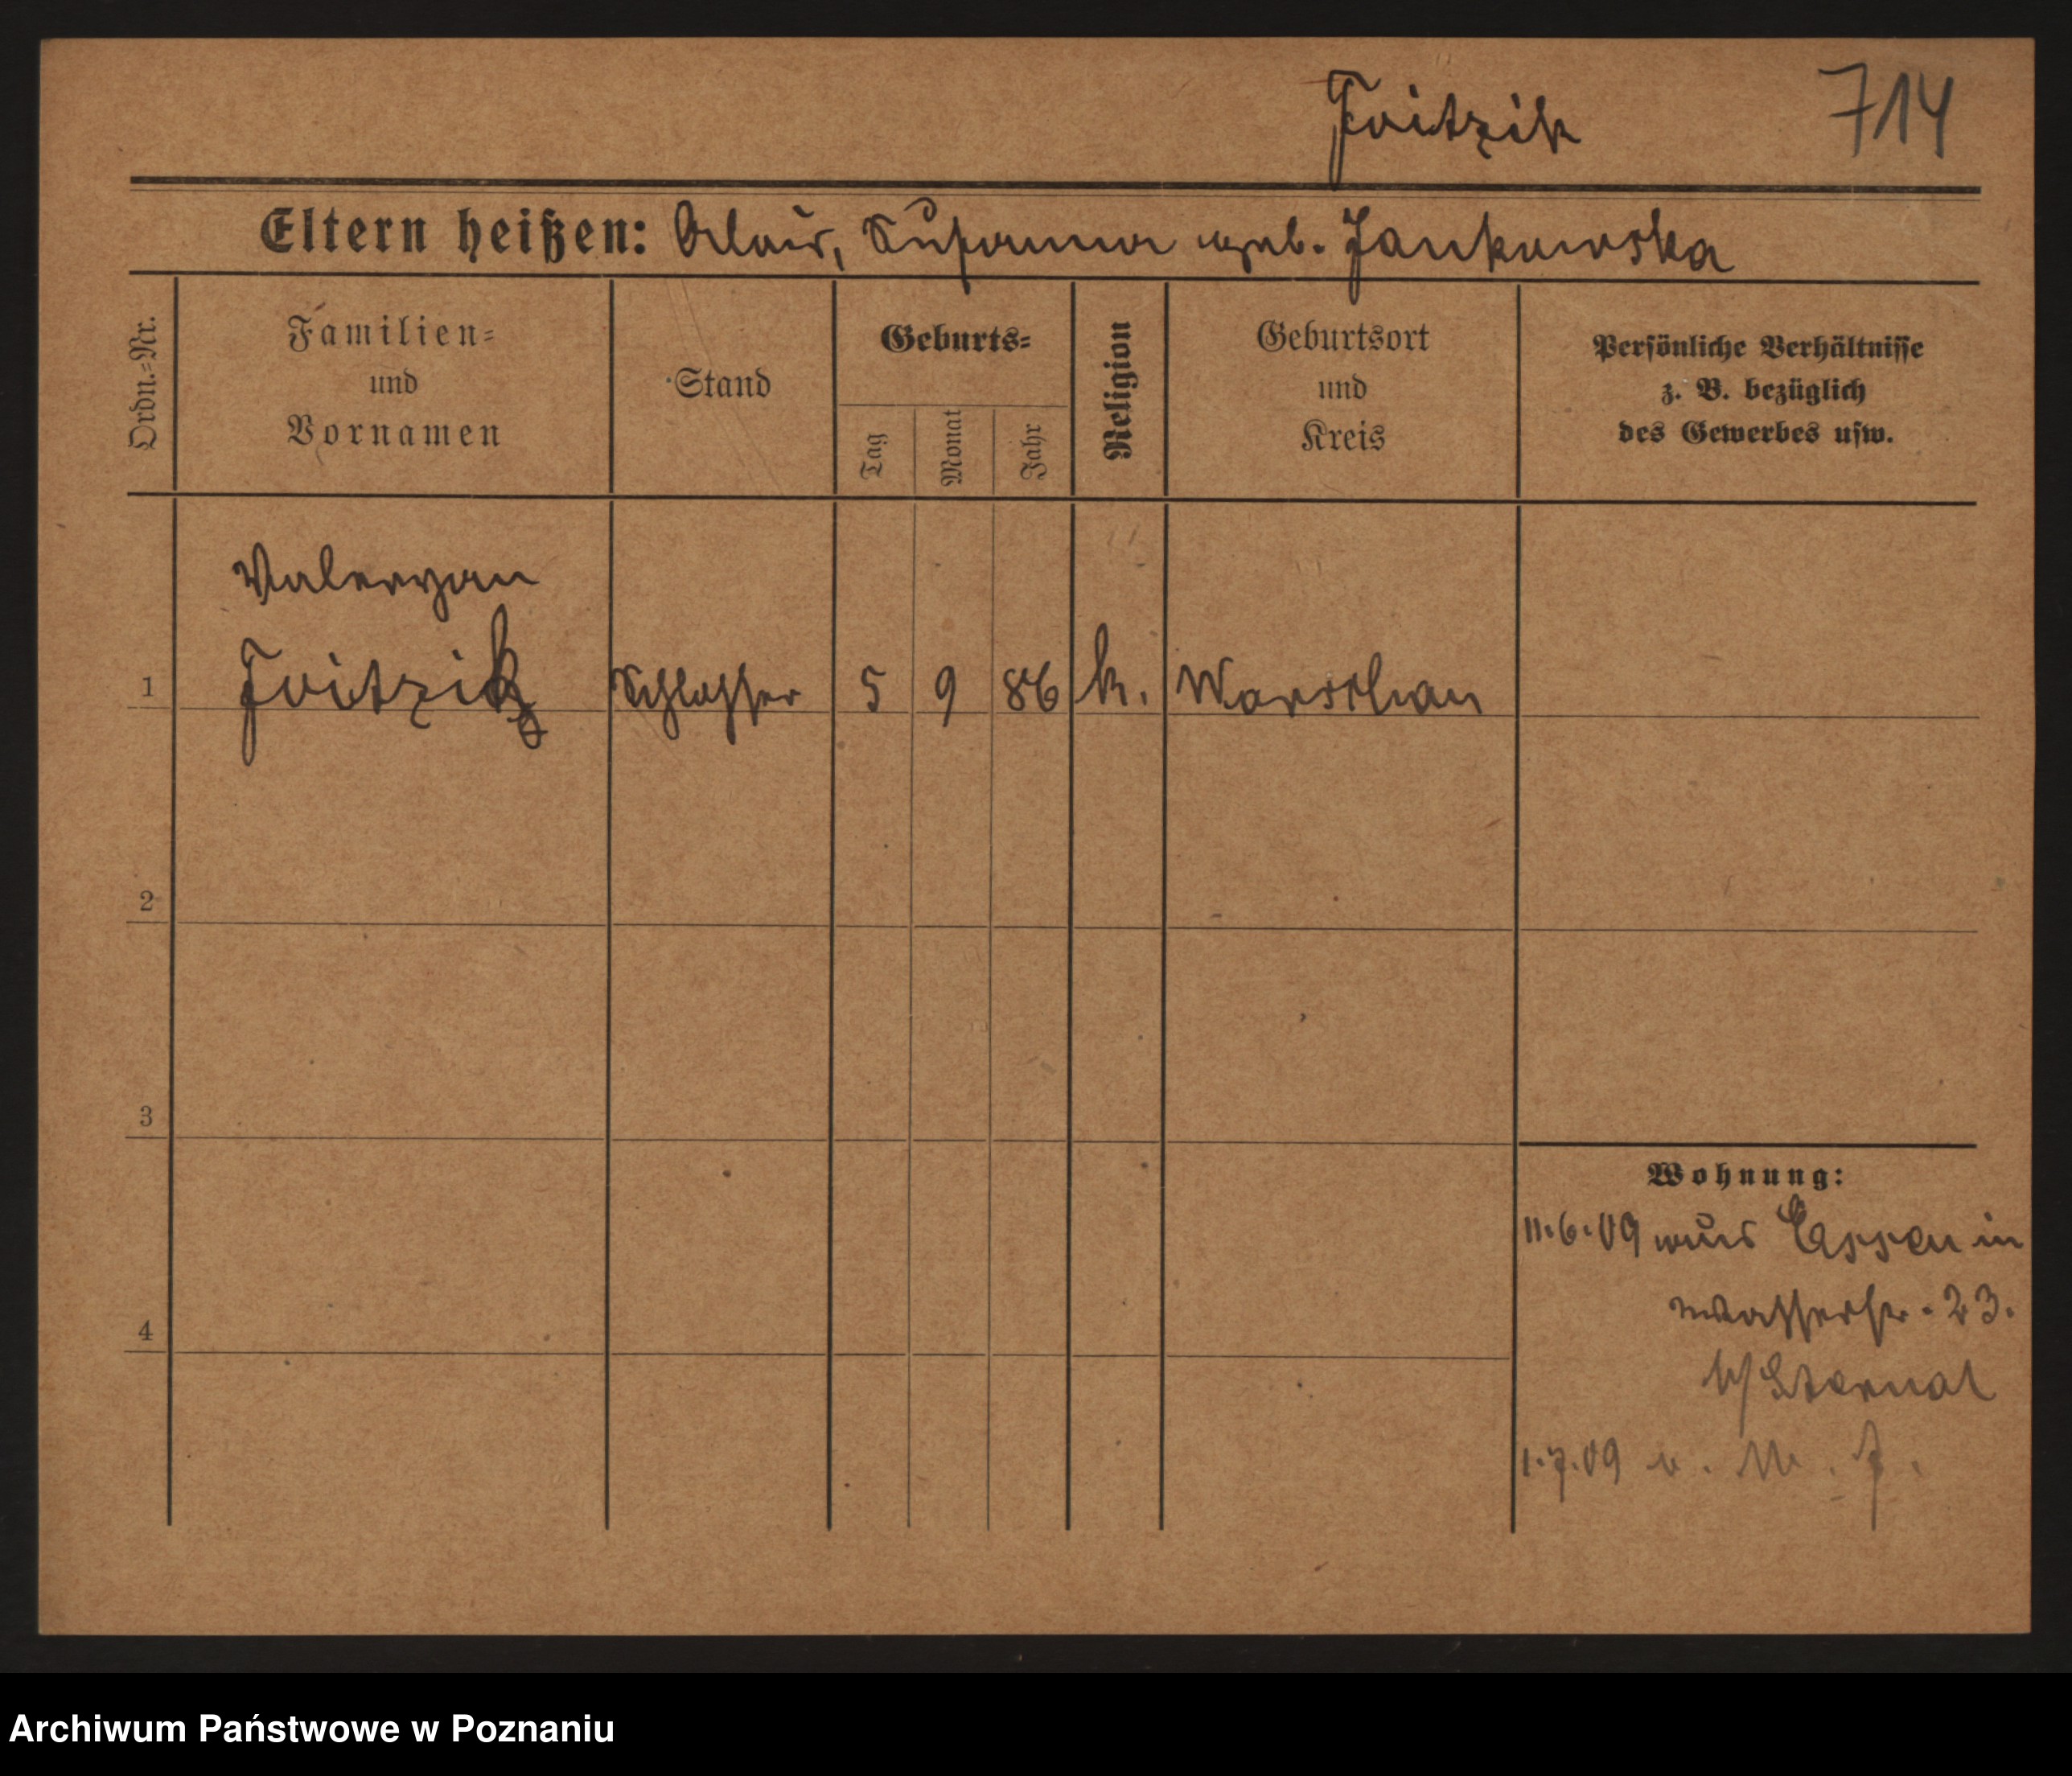 Foitzik 714
Eltern heißen: Alois, Susanna geb. Jankowska
Ordn.-Nr.
Familien-
und
Vornamen
Stand
Geburts-
Tag
Monat
Jahr
Religion
Geburtsort
und
Kreis
Persönliche Verhältnisse
z. B. bezüglich
des Gewerbes usw.
Valeryan
1 Foitzik Schlosser 5 9 86 k. Warschau
2
3
4
Wohnung:
11.6.09 aus Essen in
Wasserstr. 23.
b/Sternal
1.7.09 v.
Archiwum Państwowe w Poznaniu